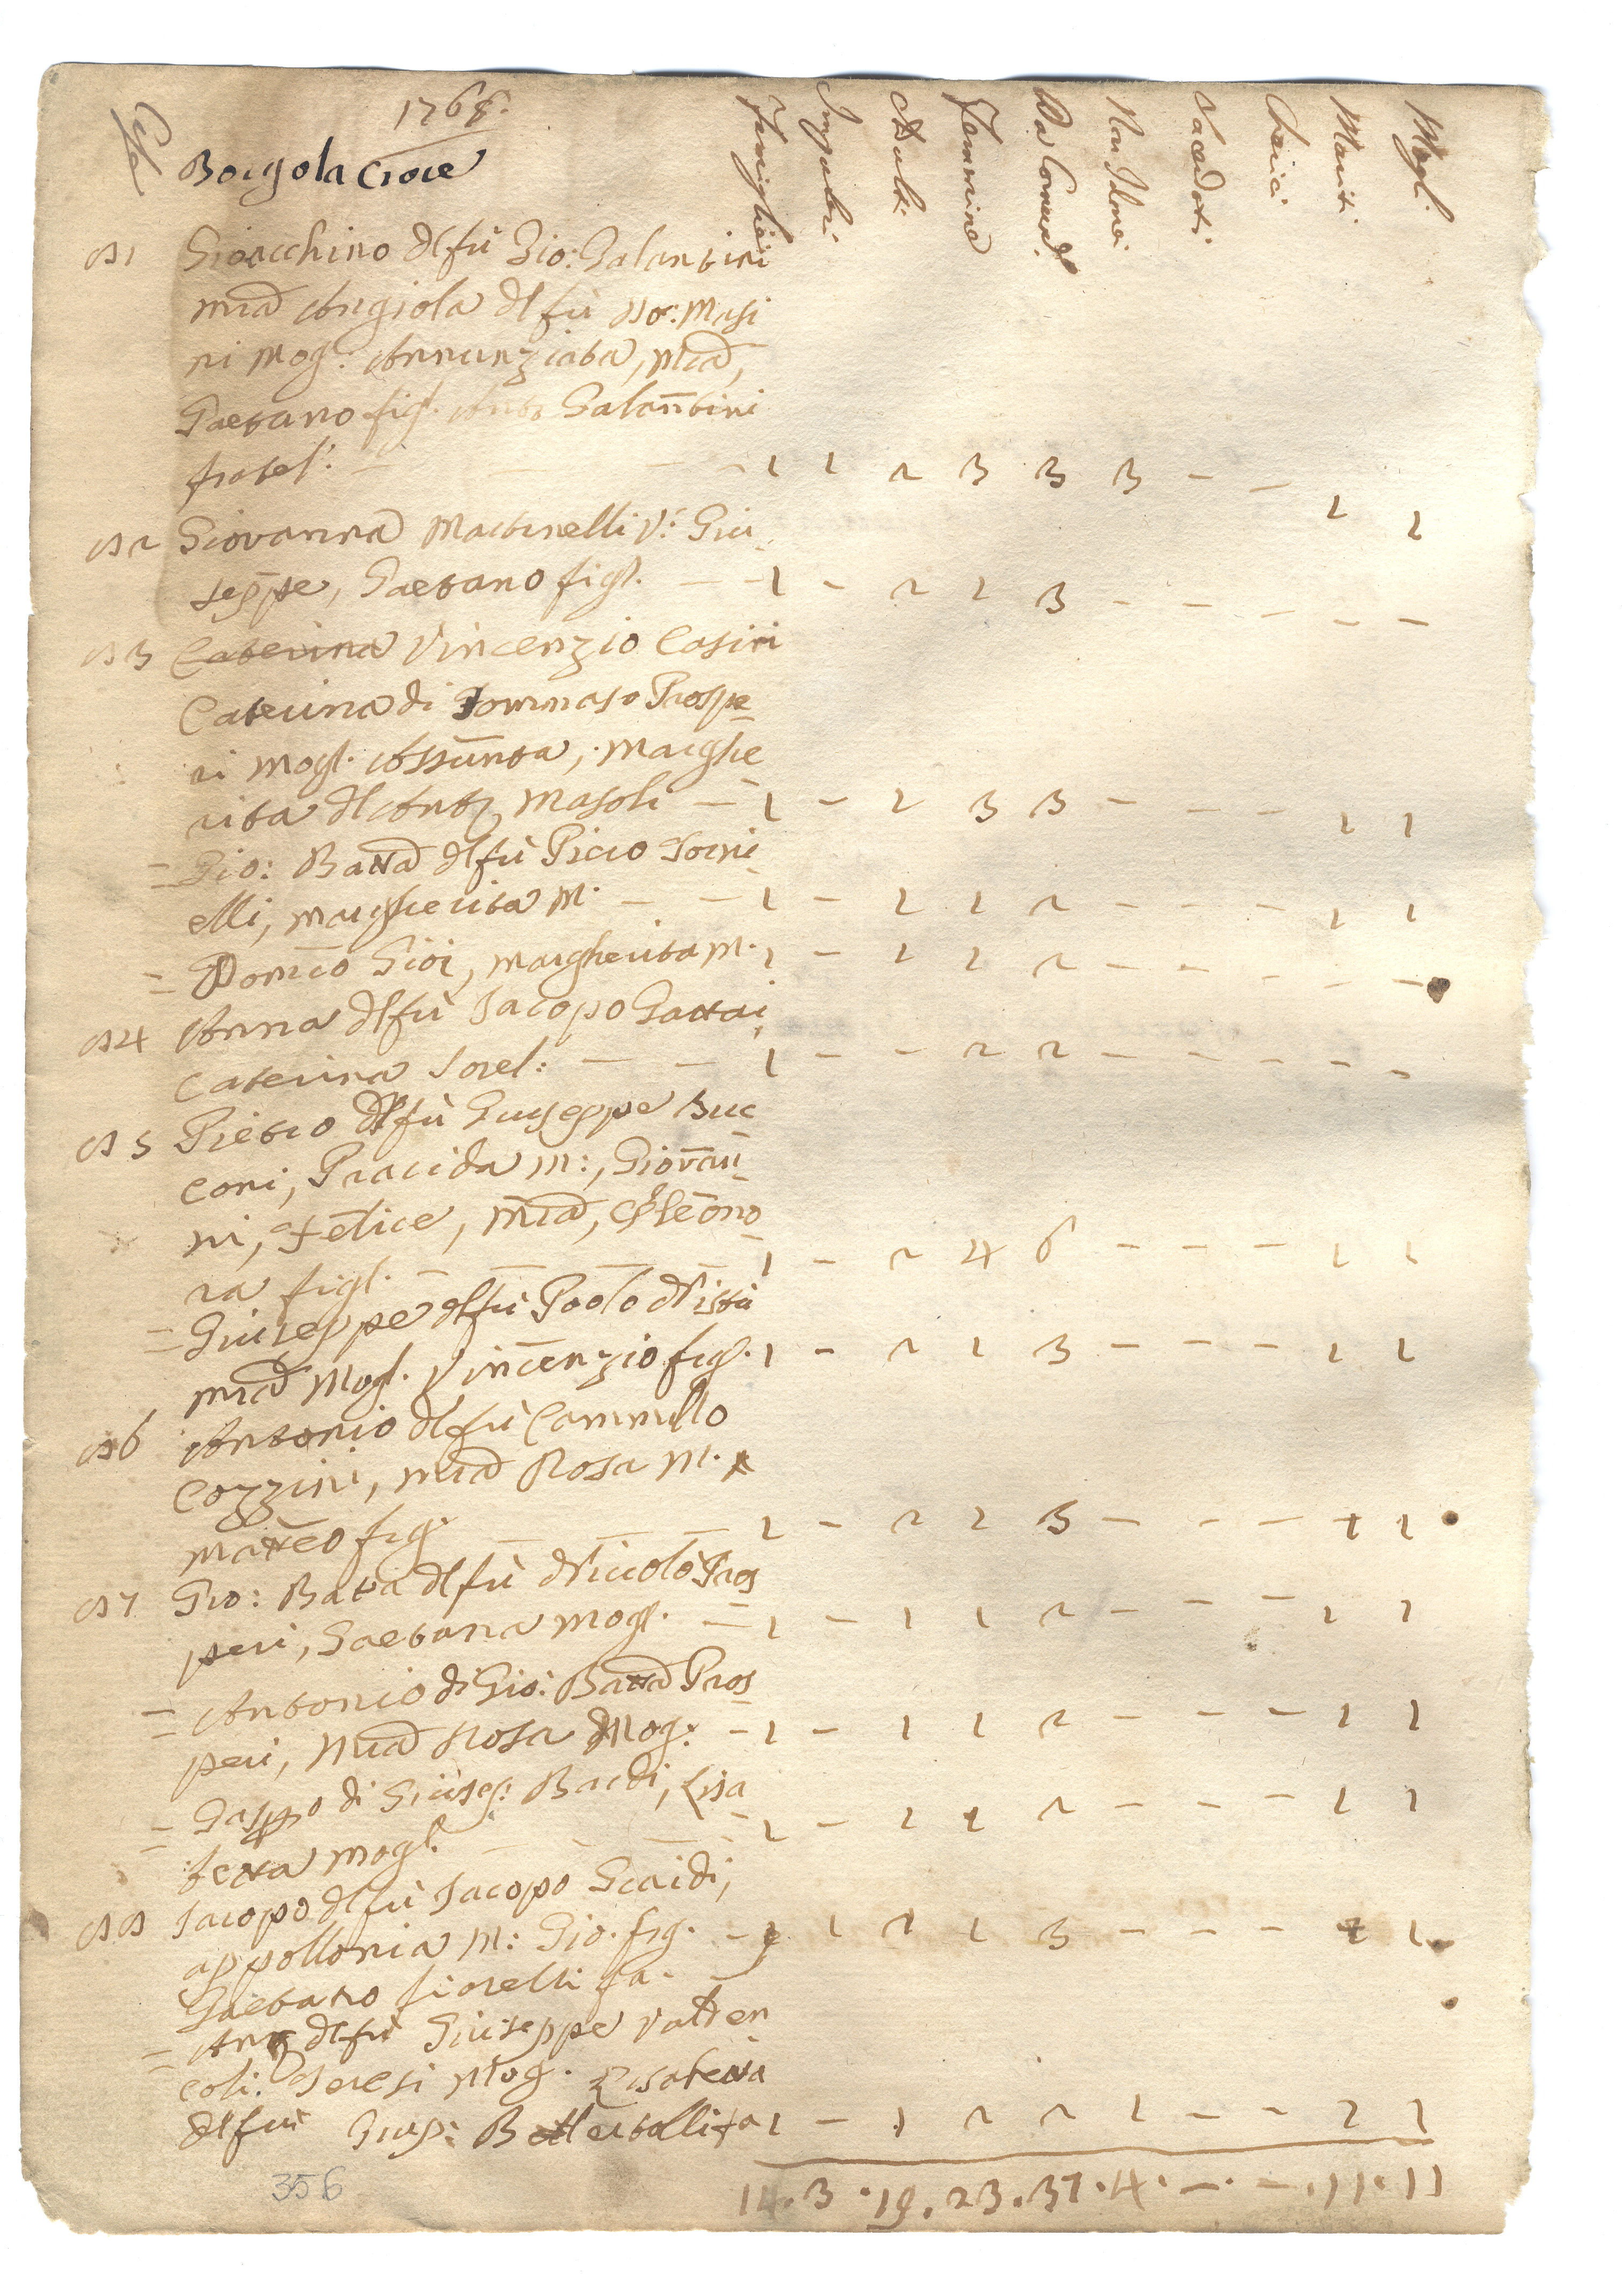 1768.
Case
Borgo la Croce
Famiglie Impuberi Adulti Femmine Da Comun. Non Idonei Sacedoti Cherici Mariti Mogli
81 Gioacchino del fù Gio: Galantini
Mia Angiola del fù Do: Masi
ni Mog: Annunziata, Mia,
Gaetano figl. Anto Galantini
fratel: - - - 1 1 2 3 3 3 - - 1 1
82 Giovanna Martinelli V: Giu
seppe, Gaetano figl. - - 1 - 2 1 3 - - - - -
83 Caterina Vincenzio Casini
Caterina di Tommaso Prospe
ri Mogl. Assunta, Marghe
rita del Anto Masoli - 1 - 1 3 3 - - - 1 1
= Gio: Batta del fù Piero Torni
elli, Margherita M. - - 1 - 1 1 2 - - - 1 1
= Domico Gioi, Margherita M. 1 - 1 1 2 - - - - -
84 Anna del fù Jacopo Gattai
Caterina Sorel: - - 1 - - 2 2 - - - - -
85 Pietro del fù Giuseppe Buc
coni, Pracida M:, Giovan
ni, Felice, Mia, Eleono
ra figl. - - - 1 - 2 4 6 - - - 1 1
= Giuseppe del fù Paolo Nistri
Mia Mogl. Vincenzio figl. 1 - 2 1 3 - - - 1 1
86 Antonio del fù Cammillo
Cozzini, Mia Rosa M.
Matteo fig. - - - 1 - 2 1 3 - - - 1 1
87 Gio: Batta del fù Niccolò Pros
peri, Gaetana Mogl. - 1 - 1 1 2 - - - 1 1
= Antonio di Gio: Batta Pros
peri, Mia Rosa Mog: - 1 - 1 1 2 - - - 1 1
= Gasppo di Giusep: Bardi, Lisa
betta Mogl. - - - 1 - 1 1 2 - - - 1 1
88 Jacopo del fù Jacopo Scardi,
appollonia M: Gio. fig. - 1 1 1 1 3 - - - 1 1
Gaetano fiorelli ga.
= Anto del fù Giuseppe Valten
coli: Teresi Mog. Lisabetta
del fu Giusp: 1 - 1 2 2 1 - - 1 1
14. 3 . 19 . 23 . 37 . 4 . - . - . 11 . 11
356